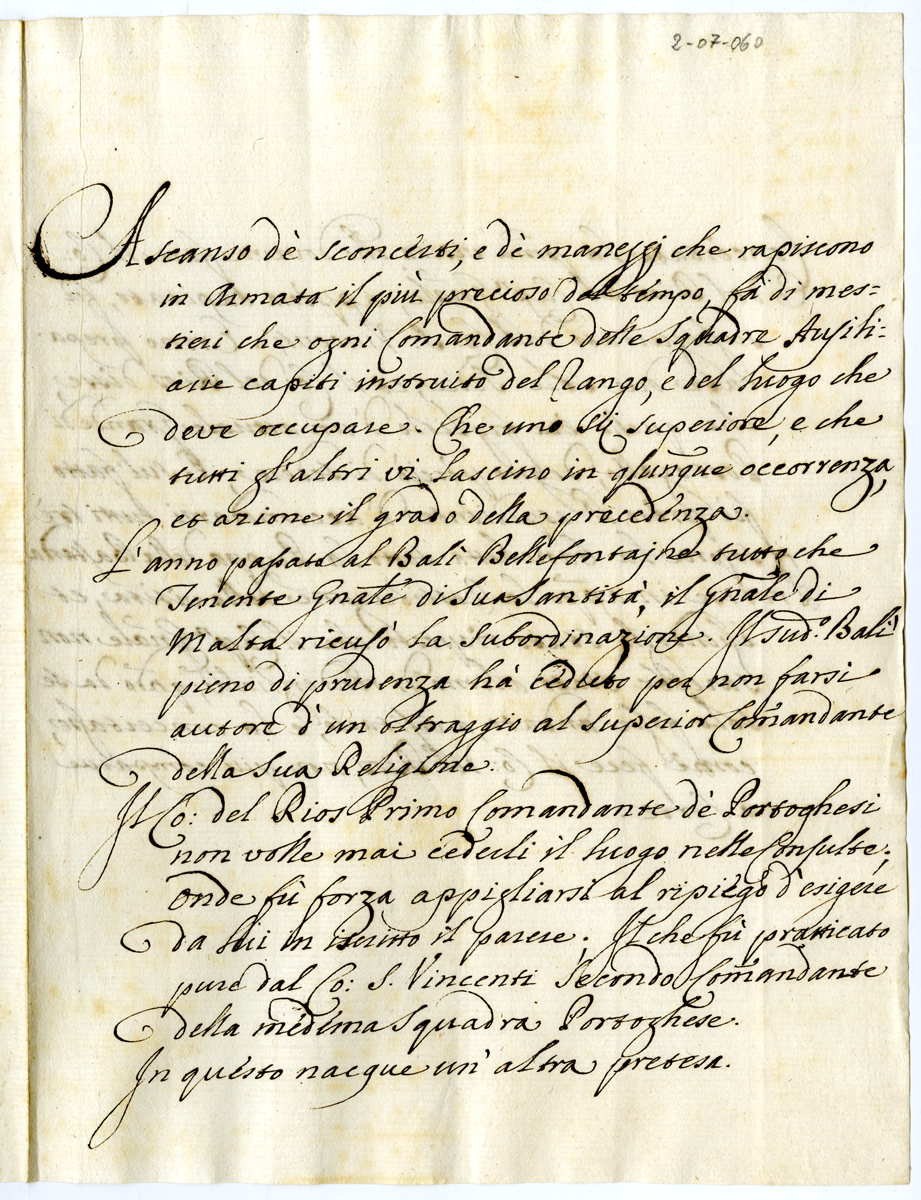 2-07-060
A scanso dè sconcerti, e dè maneggi che rapiscono
in Armata il più precioso del tempo, fà di mes=
tieri che ogni Comandante delle Squadre Ausili=
arie capiti instruito del Rango, e del luogo che
deve occupare. Che uno sij superiore, e che
tutti gl'altri vi lascino in qlunque occorrenza,
et azione il grado della precedenza.
L'anno passato al Balì Bellefontajne tutto che
Tenente Gnãle di Sua Santità, il Gnãle di
Malta ricusò la subordinazione. Il sud.º Balì
pieno di prudenza hà ceduto per non farsi
autore d'un oltraggio al superior Comandante
della sua Religione.
Il Co: del Rios Primo Comandante dè Portoghesi
non volle mai cederli il luogo nelle Consulte;
onde fù forza appigliarsi al ripiego d'esigere
da lui in iscritto il parere. Il che fù pratticato
pure dal Co: S. Vincenti Secondo Comandante
della medema Squadra Portoghese.
In questo nacque un'altra pretesa.